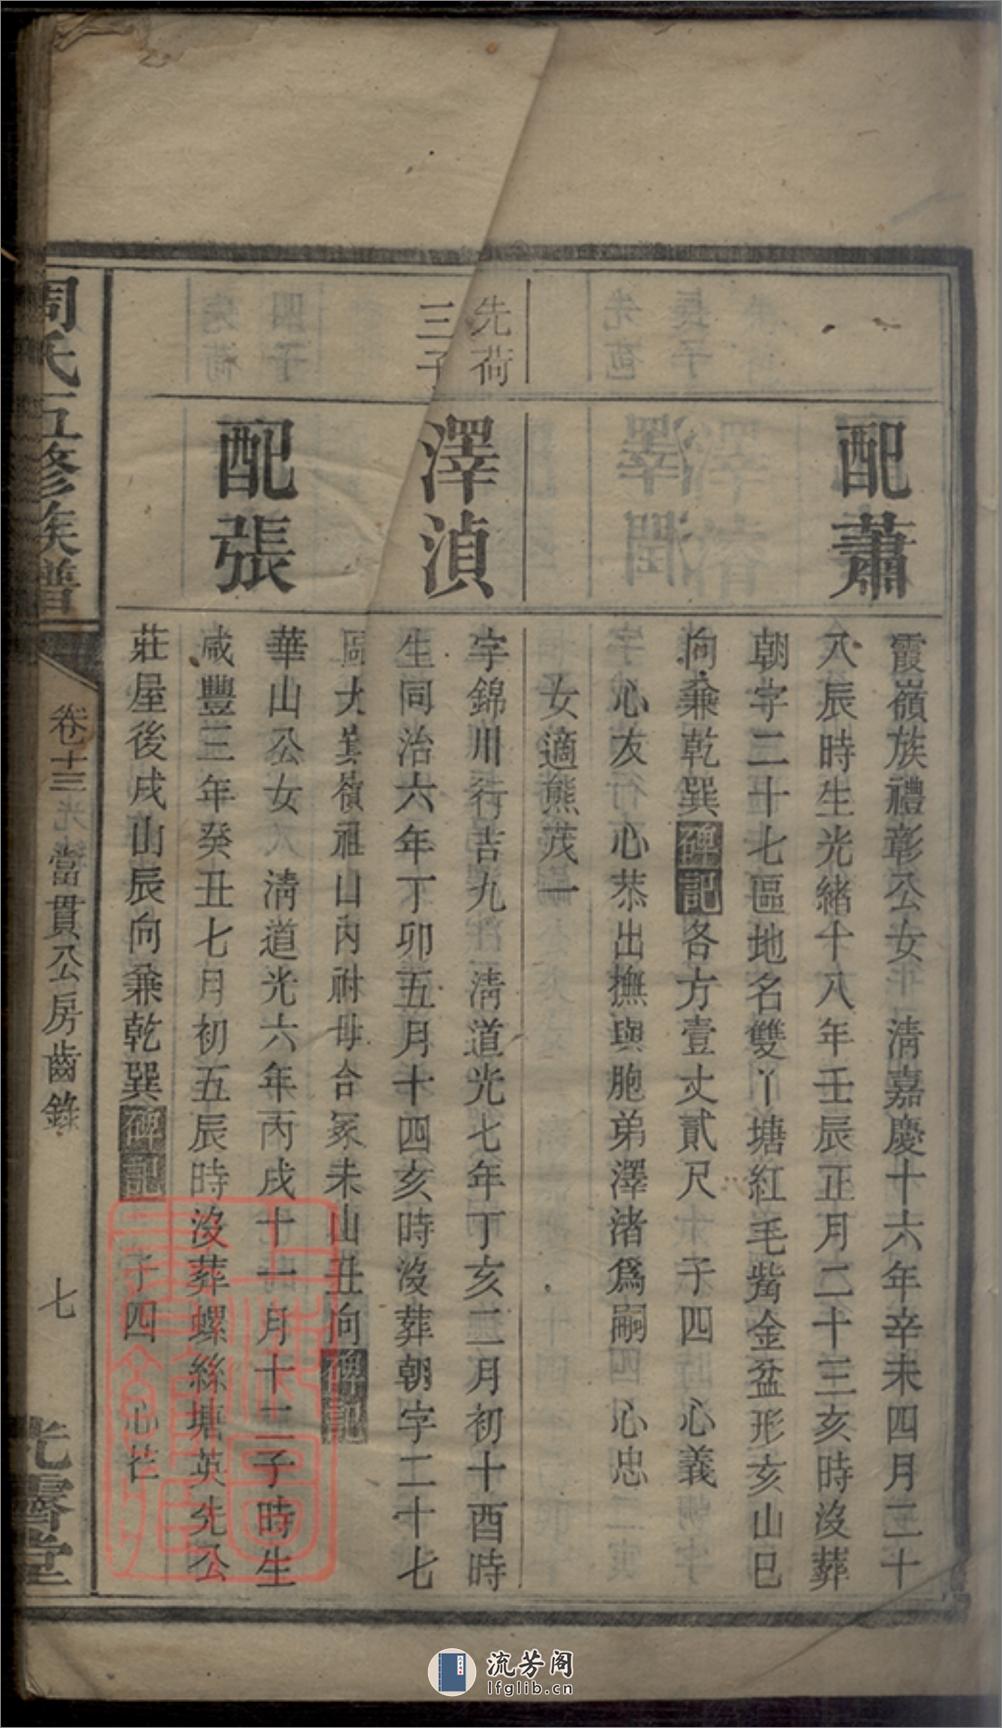 配蕭
霞嶺族禮彰公女　清嘉慶十六年辛未四月二十
八辰時生光緒十八年壬辰正月二十三亥時沒葬
朝字二十七區地名雙丫塘紅毛觜金盆形亥山巳
向兼乾巽碑記各方壹丈貳尺　子四　心義
心友行心恭出撫與胞弟澤渚爲嗣　心忠
女適熊茂一
先荷
三子
澤湞
字錦川行吉九　清道光七年丁亥二月初十酉時
生同治六年丁卯五月十四亥時沒葬朝字二十七
區大箕嶺祖山內祔母合冢未山丑向碑記
配張
華山公女　清道光六年丙戌十一月十二子時生
咸豐三年癸丑七月初五辰時沒葬螺絲塘英先公
莊屋後戌山辰向兼乾巽碑記　子四　心
周氏五修族譜
卷十三
當貫公房齒錄
七
光霽堂
流芳阁
lfglib.cn